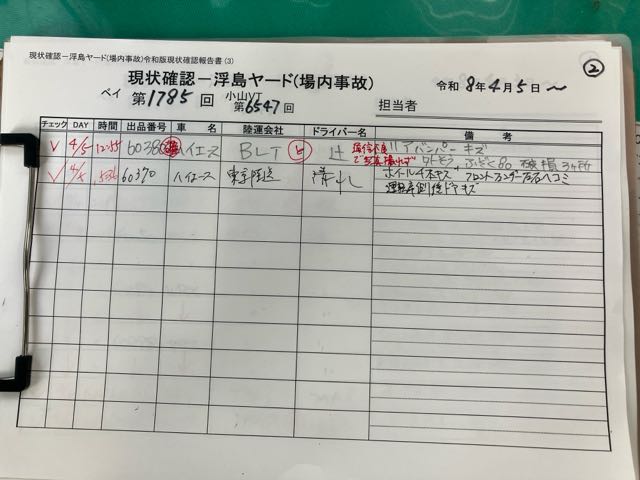 現状確認ー浮島ヤード(場内事故)令和版現状確認報告書(3)
②
現状確認ー浮島ヤード(場内事故)
令和 8年4月5日〜
ベイ 第1785回 小山VT 第6547回
担当者
チェック DAY 時間 出品番号 車名 陸運会社 ドライバー名 備考
✓ 4/5 12:55 6038 ハイエース BLT 辻 リアバンパーキズ
破損3ヶ所
✓ 4/5 60370 ハイエース 東京陸送 溝爪 ホイル4本キズ フロントフェンダー左右ヘコミ
運転席側後ドアキズ